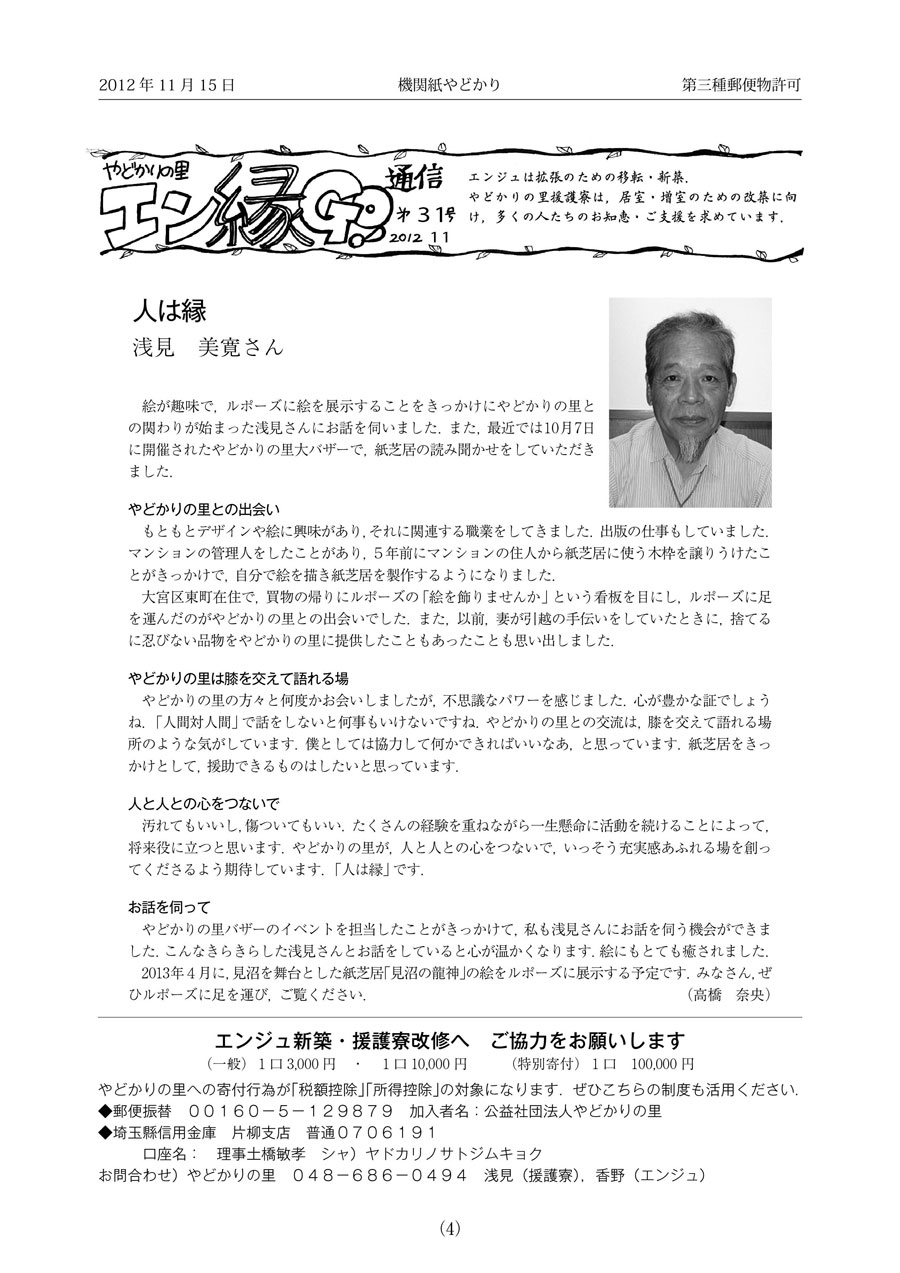 2012年11月15日　機関紙やどかり　第三種郵便物許可
やどかりの里
エン縁GO!
通信
第31号
2012 11
エンジュは拡張のための移転・新築．
やどかりの里援護寮は，居室・増室のための改築に向
け，多くの人たちのお知恵・ご支援を求めています．
人は縁
浅見　美寛さん
絵が趣味で，ルポーズに絵を展示することをきっかけにやどかりの里と
の関わりが始まった浅見さんにお話を伺いました．また，最近では10月7日
に開催されたやどかりの里大バザーで，紙芝居の読み聞かせをしていただき
ました．
やどかりの里との出会い
もともとデザインや絵に興味があり，それに関連する職業をしてきました．出版の仕事もしていました．
マンションの管理人をしたことがあり，５年前にマンションの住人から紙芝居に使う木枠を譲りうけたこ
とがきっかけで，自分で絵を描き紙芝居を製作するようになりました．
大宮区東町在住で，買物の帰りにルポーズの「絵を飾りませんか」という看板を目にし，ルポーズに足
を運んだのがやどかりの里との出会いでした．また，以前，妻が引越の手伝いをしていたときに，捨てる
に忍びない品物をやどかりの里に提供したこともあったことも思い出しました．
やどかりの里は膝を交えて語れる場
やどかりの里の方々と何度かお会いしましたが，不思議なパワーを感じました．心が豊かな証でしょう
ね．「人間対人間」で話をしないと何事もいけないですね．やどかりの里との交流は，膝を交えて語れる場
所のような気がしています．僕としては協力して何かできればいいなあ，と思っています．紙芝居をきっ
かけとして，援助できるものはしたいと思っています．
人と人との心をつないで
汚れてもいいし，傷ついてもいい．たくさんの経験を重ねながら一生懸命に活動を続けることによって，
将来役に立つと思います．やどかりの里が，人と人との心をつないで，いっそう充実感あふれる場を創っ
てくださるよう期待しています．「人は縁」です．
お話を伺って
やどかりの里バザーのイベントを担当したことがきっかけて，私も浅見さんにお話を伺う機会ができま
した．こんなきらきらした浅見さんとお話をしていると心が温かくなります．絵にもとても癒されました．
2013年４月に，見沼を舞台とした紙芝居「見沼の龍神」の絵をルポーズに展示する予定です．みなさん，ぜ
ひルポーズに足を運び，ご覧ください．　（高橋　奈央）
エンジュ新築・援護寮改修へ　ご協力をお願いします
（一般）１口3,000円　・　１口10,000円　（特別寄付）１口　100,000円
やどかりの里への寄付行為が「税額控除」「所得控除」の対象になります．ぜひこちらの制度も活用ください．
◆郵便振替　００１６０－５－１２９８７９　加入者名：公益社団法人やどかりの里
◆埼玉縣信用金庫　片柳支店　普通０７０６１９１
口座名：　理事土橋敏孝　シャ）ヤドカリノサトジムキョク
お問合わせ）やどかりの里　０４８－６８６－０４９４　浅見（援護寮），香野（エンジュ）
（4）